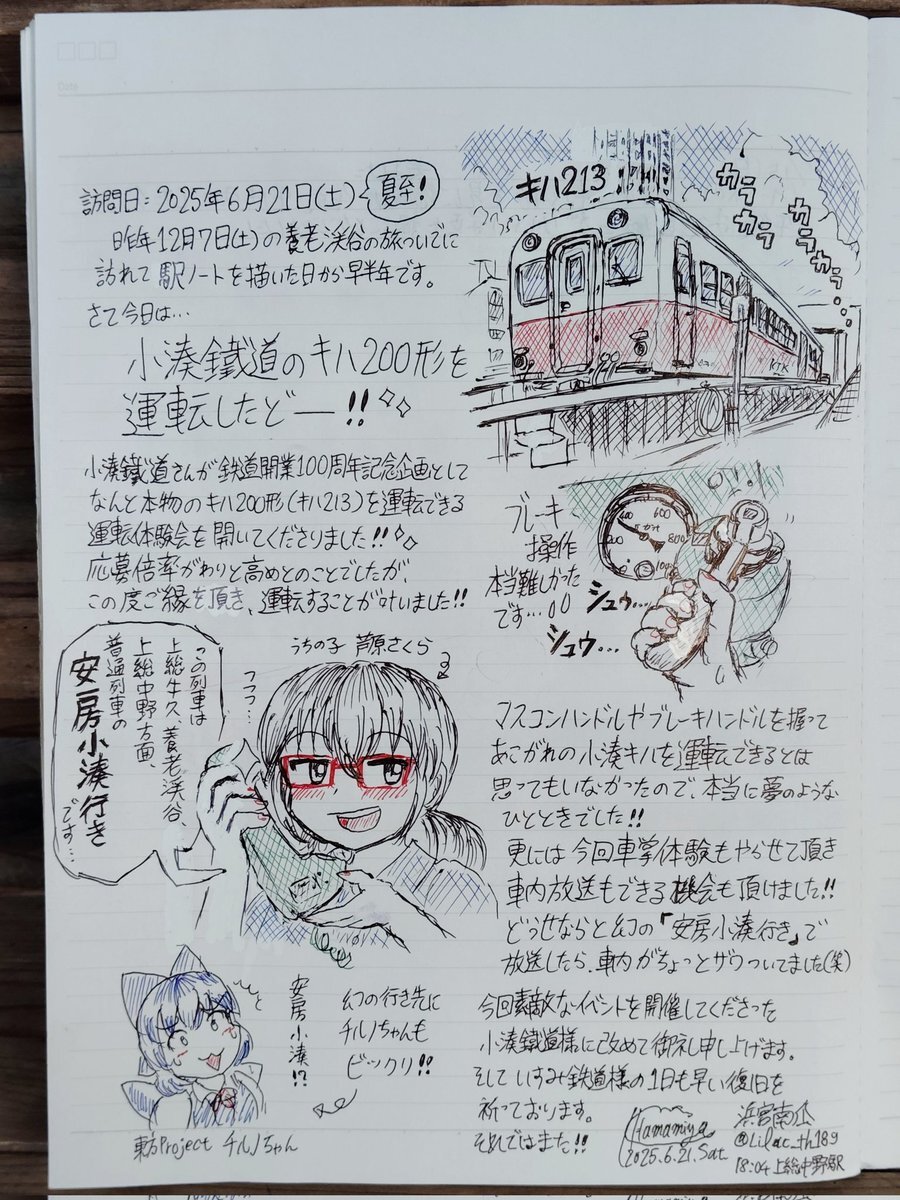 Date
訪問日：2025年6月21日(土)
夏至！
昨年12月7日(土)の養老渓谷の旅ついでに
訪れて駅ノートを描いた日から早半年です。
さて今日は…
小湊鐵道のキハ200形を
運転したどー!!
キハ213
カラ
カラ
カラ
カラ
KTK
小湊鐵道さんが鉄道開業100周年記念企画として
なんと本物のキハ200形(キハ213)を運転できる
運転体験会を開いてくださりました!!
応募倍率がわりと高めとのことでしたが、
この度ご縁を頂き、運転することが叶いました!!
ブレーキ
操作
本当難しかった
です…
シュウ…
シュウ…
400
600
800
うちの子 芦原さくら
フフフ…
この列車は
上総牛久、養老渓谷、
上総中野方面、
普通列車の
安房小湊行き
です…
マスコンハンドルやブレーキハンドルを握って
あこがれの小湊キハを運転できるとは
思ってもいなかったので、本当に夢のような
ひとときでした!!
更には今回車掌体験もやらせて頂き
車内放送もできる機会も頂けました!!
どうせならと幻の「安房小湊行き」で
放送したら、車内がちょっとザワついてました(笑)
安房小湊!?
幻の行き先に
チルノちゃんも
ビックリ!!
東方Project チルノちゃん
今回素敵なイベントを開催してくださった
小湊鐵道様に改めて御礼申し上げます。
そしていすみ鉄道様の1日も早い復旧を
祈っております。
それではまた!!
Hamamiya
2025.6.21.Sat
@Lilac_th189
18:04 上総中野駅